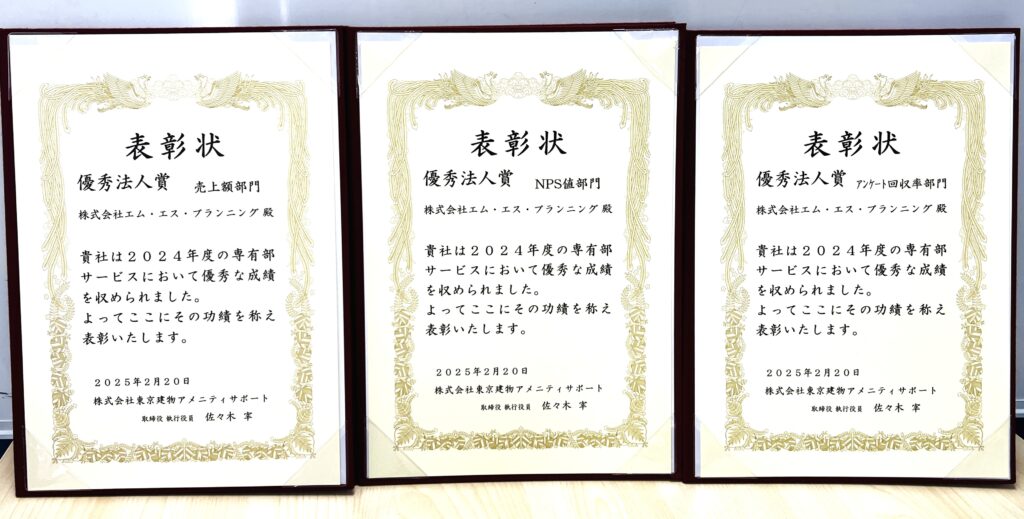 表彰状
優秀法人賞 売上額部門
株式会社エム・エス・プランニング 殿
貴社は２０２４年度の専有部
サービスにおいて優秀な成績
を収められました。
よってここにその功績を称え
表彰いたします。
２０２５年２月２０日
株式会社東京建物アメニティサポート
取締役 執行役員 佐々木 寧
表彰状
優秀法人賞 NPS値部門
株式会社エム・エス・プランニング 殿
貴社は２０２４年度の専有部
サービスにおいて優秀な成績
を収められました。
よってここにその功績を称え
表彰いたします。
２０２５年２月２０日
株式会社東京建物アメニティサポート
取締役 執行役員 佐々木 寧
表彰状
優秀法人賞 ｱﾝｹｰﾄ回収率部門
株式会社エム・エス・プランニング 殿
貴社は２０２４年度の専有部
サービスにおいて優秀な成績
を収められました。
よってここにその功績を称え
表彰いたします。
２０２５年２月２０日
株式会社東京建物アメニティサポート
取締役 執行役員 佐々木 寧